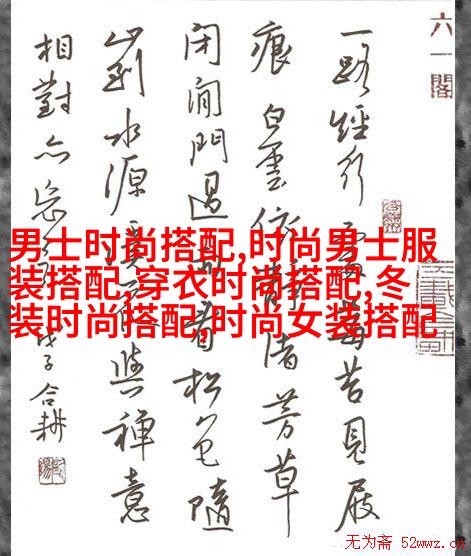 六一閣
一路經行處莓苔見屐
痕白雲依靜渚芳草
閉閑門過雨看松色隨
山到水源溪花與禪意
相對亦忘言 戊子合耕
男士时尚搭配,时尚男士服
装搭配,穿衣时尚搭配,冬
装时尚搭配,时尚女装搭配
无为斋 52wwz.cn